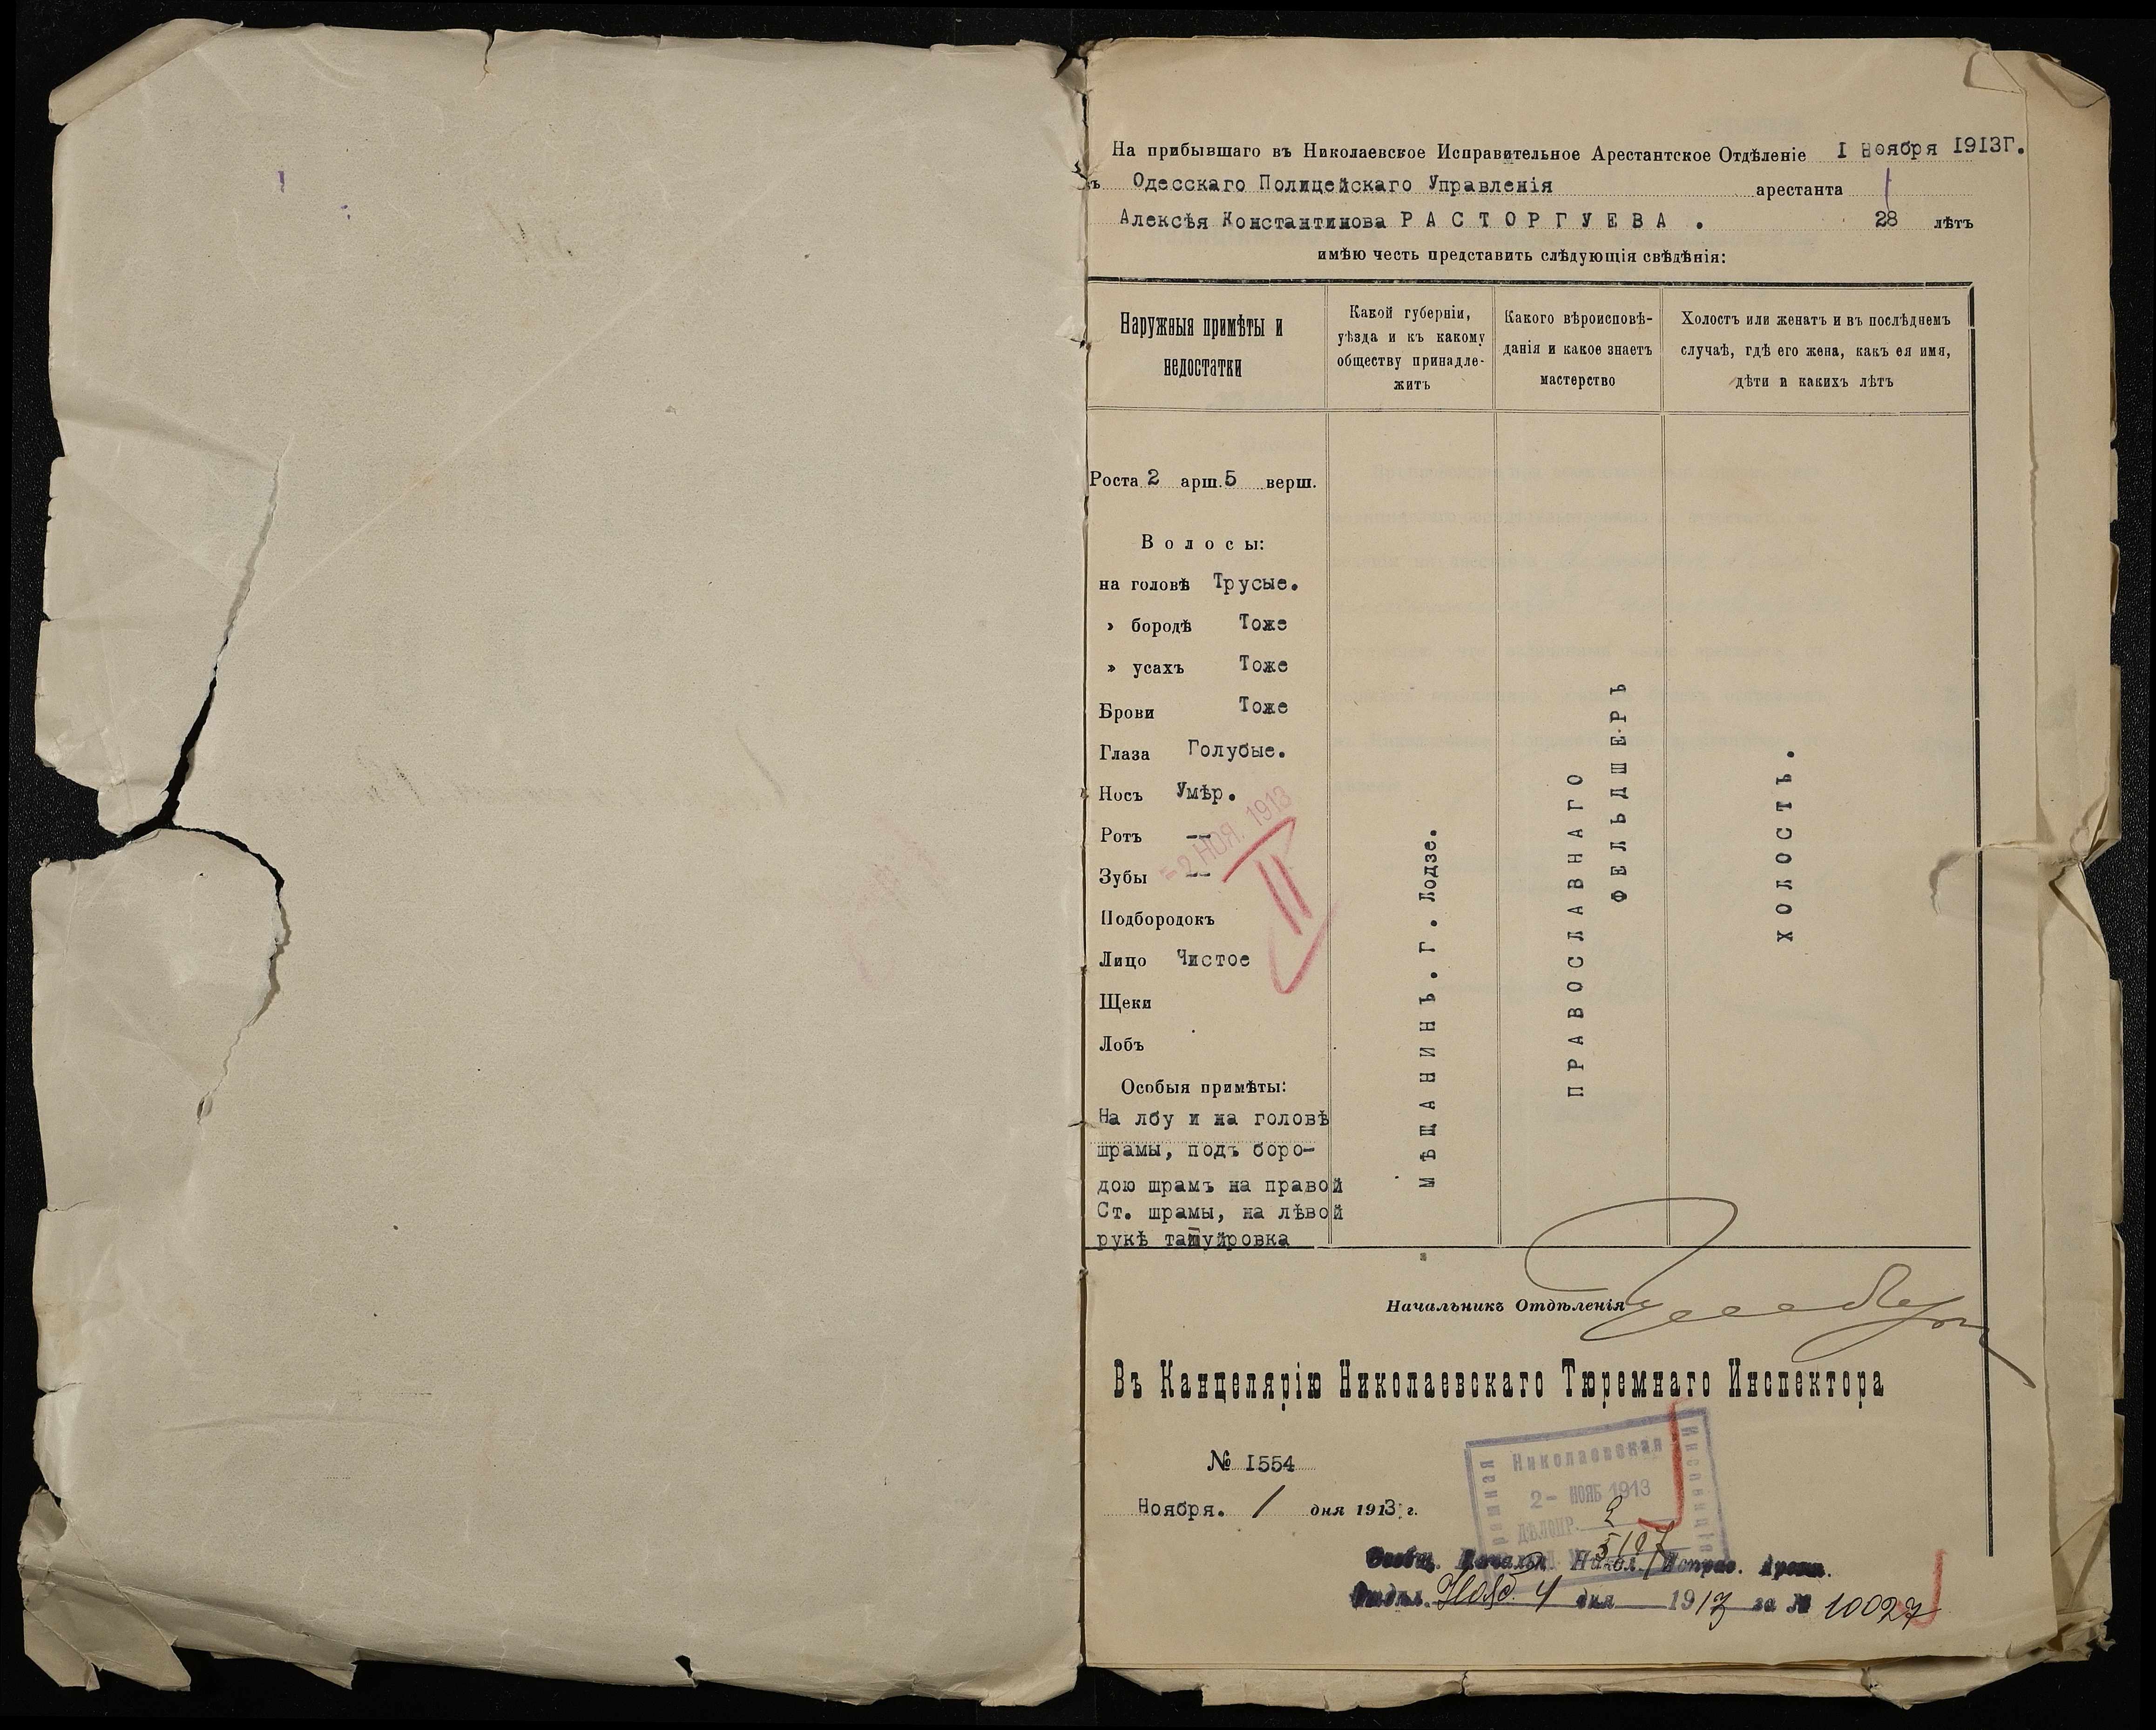 На прибывшаго въ Николаевское Исправительное Арестантское Отдѣленіе 1 Ноября 1913Г.
Одесскаго Полицейскаго Управленія арестанта
Алексѣя Константинова РАСТОРГУЕВА . 28 лѣтъ
имѣю честь представить слѣдующія свѣдѣнія:
Наружныя примѣты и
недостатки
Какой губерніи,
уѣзда и къ какому
обществу принадле-
житъ
Какого вѣроисповѣ-
данія и какое знаетъ
мастерство
Холостъ или женатъ и въ послѣднемъ
случаѣ, гдѣ его жена, какъ ея имя,
дѣти и какихъ лѣтъ
Роста 2 арш. 5 верш.
Волосы:
на головѣ Трусые.
» бородѣ Тоже
» усахъ Тоже
Брови Тоже
Глаза Голубые.
Носъ Умѣр.
Ротъ --
Зубы --
Подбородокъ
Лицо Чистое
Щеки
Лобъ
Особыя примѣты:
На лбу и на головѣ
шрамы, подъ боро-
дою шрамъ на правой
Ст. шрамы, на лѣвой
рукѣ татуировка
= 2 НОЯ. 1913
II
МѢЩАНИНЪ. Г. Лодзе.
ПРАВОСЛАВНАГО
ФЕЛЬДШЕРЪ
ХОЛОСТЪ.
Начальникъ Отдѣленія
Въ Канцелярію Николаевскаго Тюремнаго Инспектора
№ 1554
Ноября. 1 дня 1913 г.
Николаевская
Инспекція
2- НОЯБ 1913
ДѢЛОПР. 2
5187
Сообщ. Начальн. Никол. Исправ. Арест.
Отдѣл. Нояб. 4 дня 1913 за № 10027